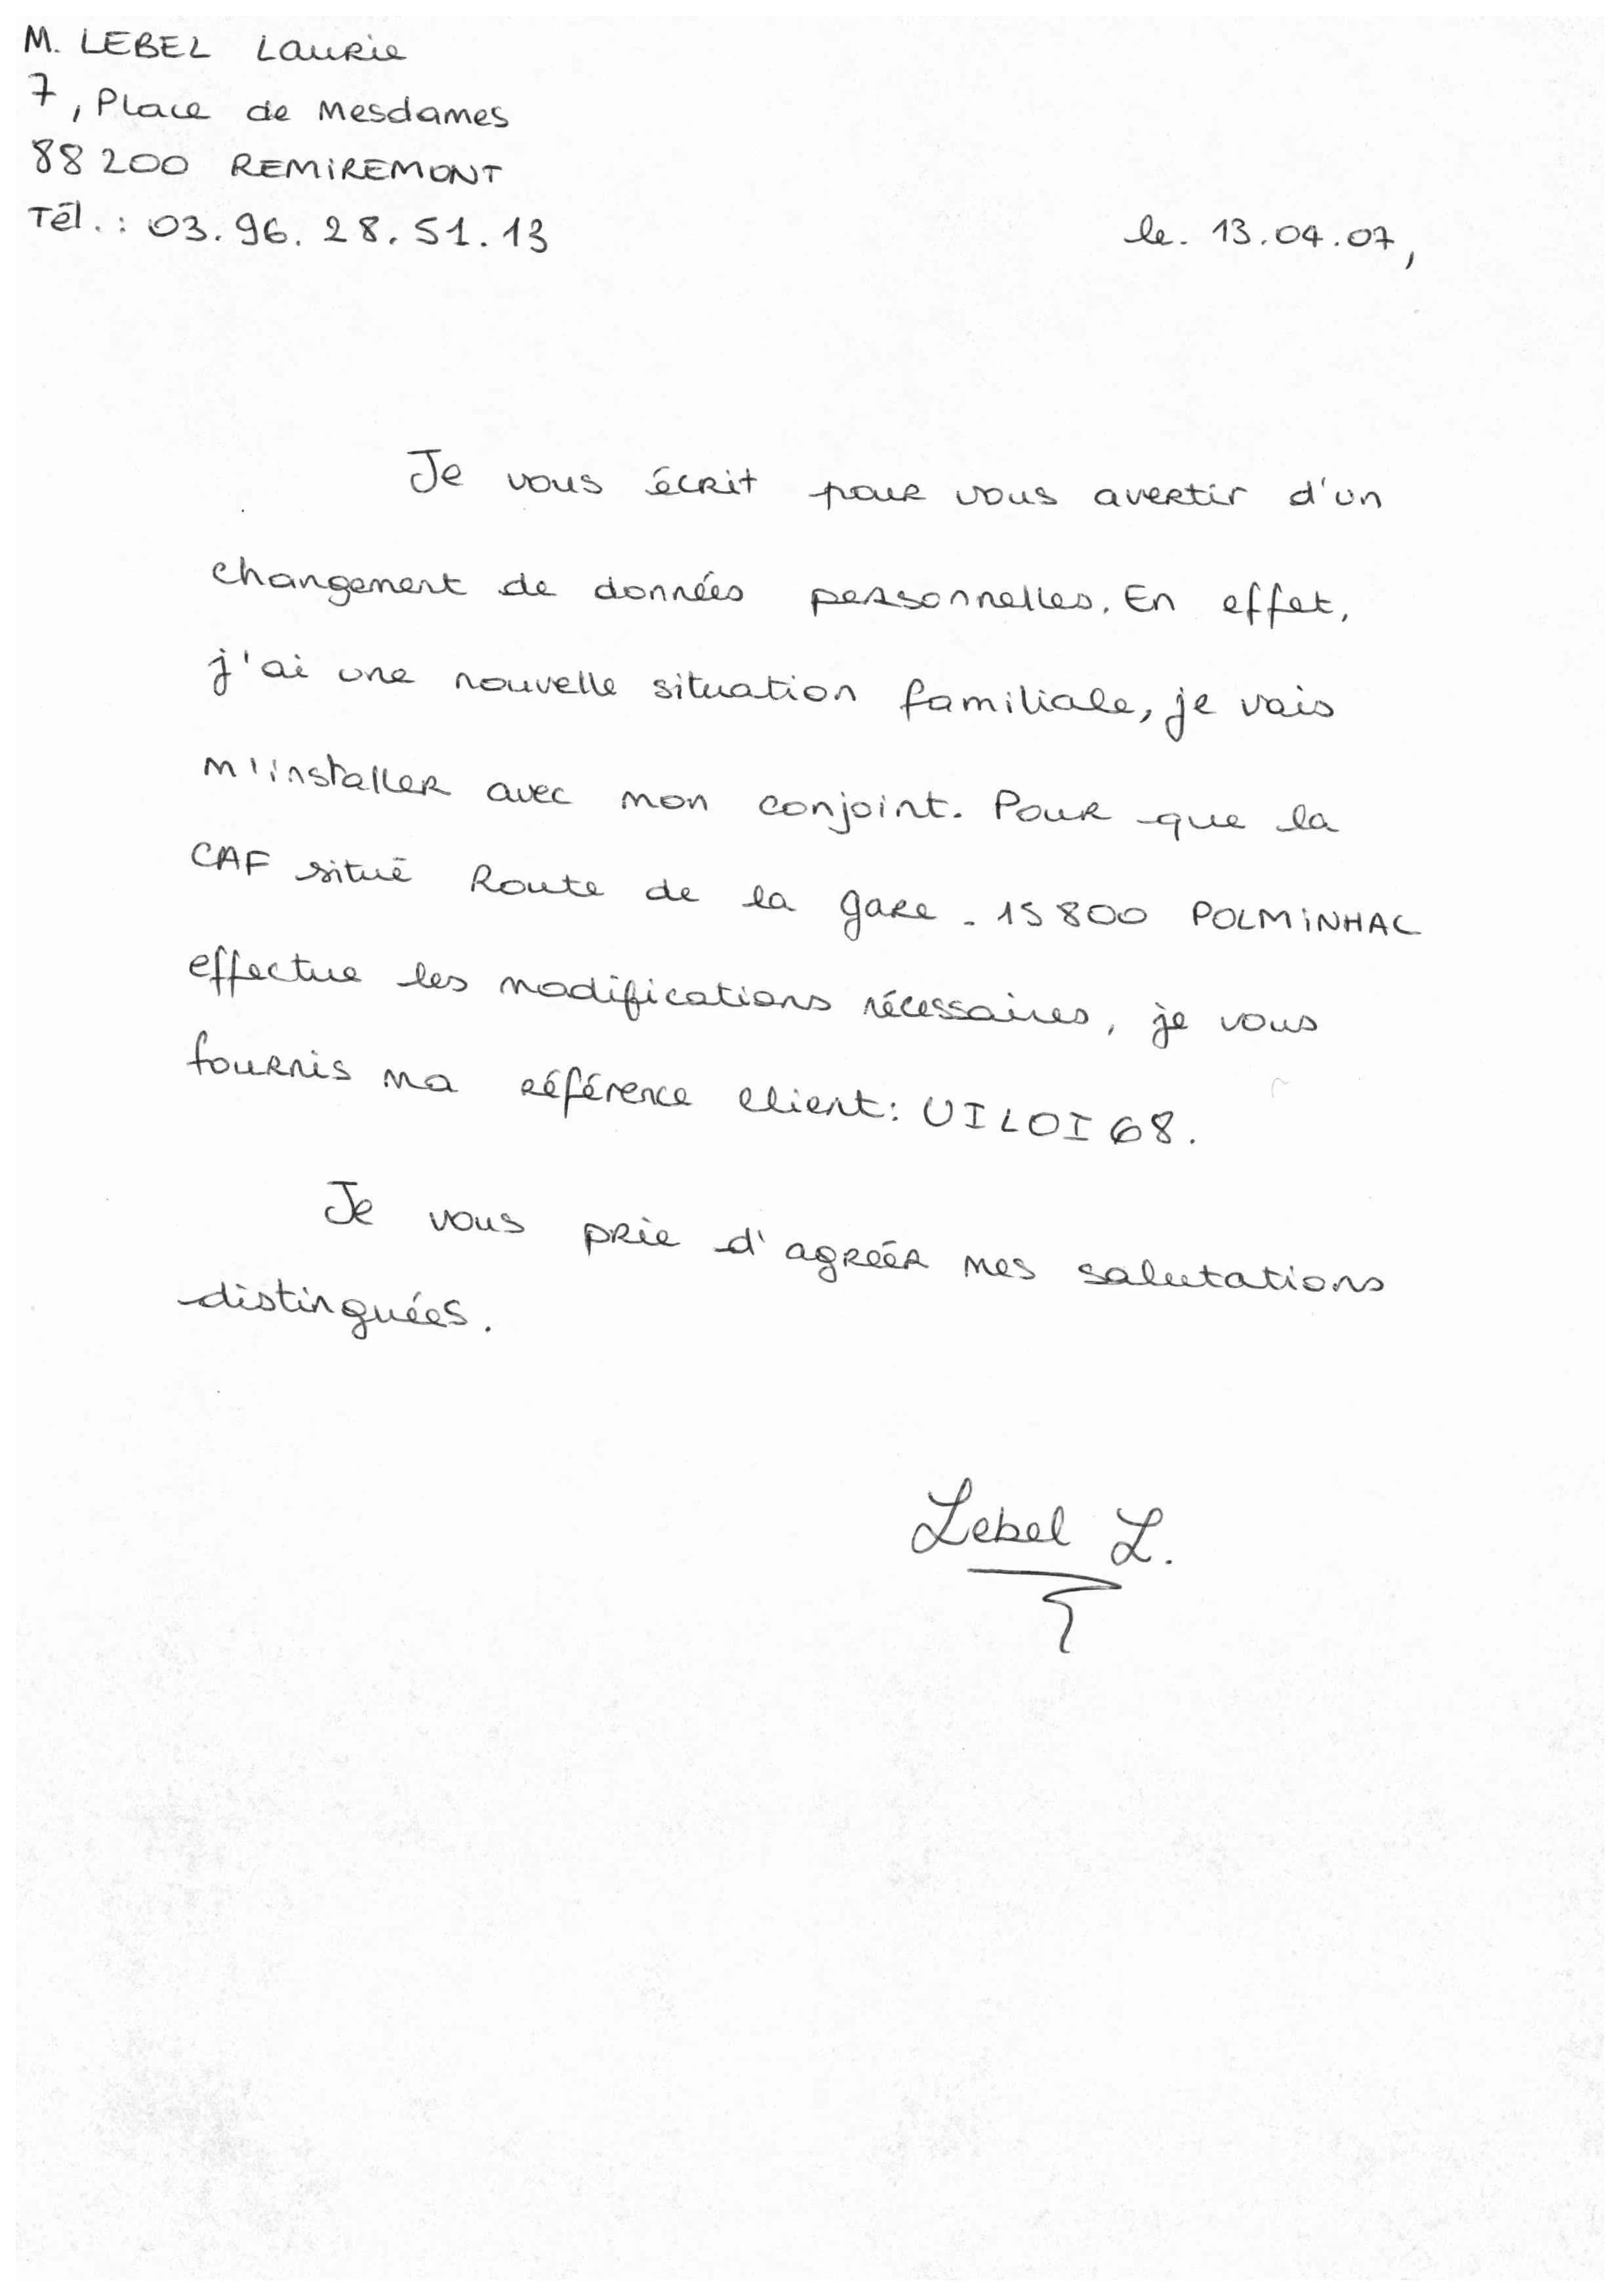 M. LEBEL Laurie
7, Place de Mesdames
88 200 REMIREMONT
Tél. : 03. 96. 28. 51. 13
le. 13.04.07,
Je vous écrit pour vous avertir d'un
changement de données personnelles. En effet,
j'ai une nouvelle situation familiale, je vais
m'installer avec mon conjoint. Pour que la
CAF situé Route de la gare - 15 800 POLMINHAC
effectue les modifications nécessaires, je vous
fournis ma référence client: UILOI68.
Je vous prie d'agréér mes salutations
distinguées.
Lebel L.